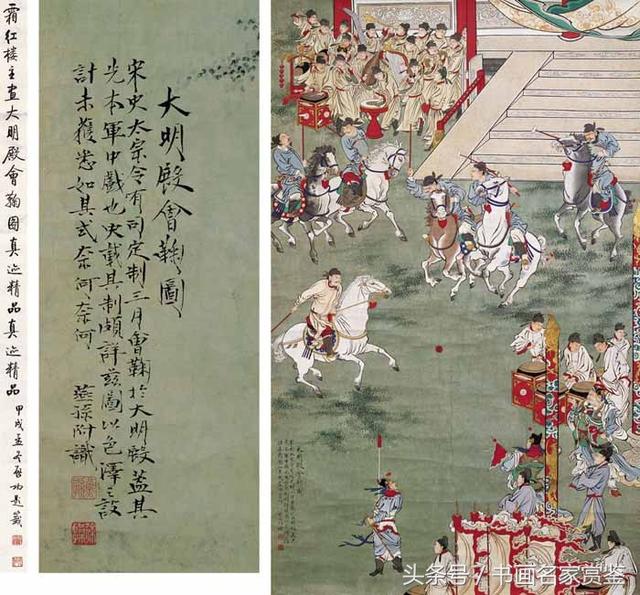 霜红楼主畫大明殿會鞠图真迹精品真迹精品 甲戌孟冬启功题签
大明殿會鞠圖
宋史太宗令有司定制三月會鞠於大明殿蓋其
先本軍中戲也史載其制頗詳茲圖以色澤之設
計未獲悉如其式奈何奈何 燕孫附識
头条号 / 书画名家赏鉴